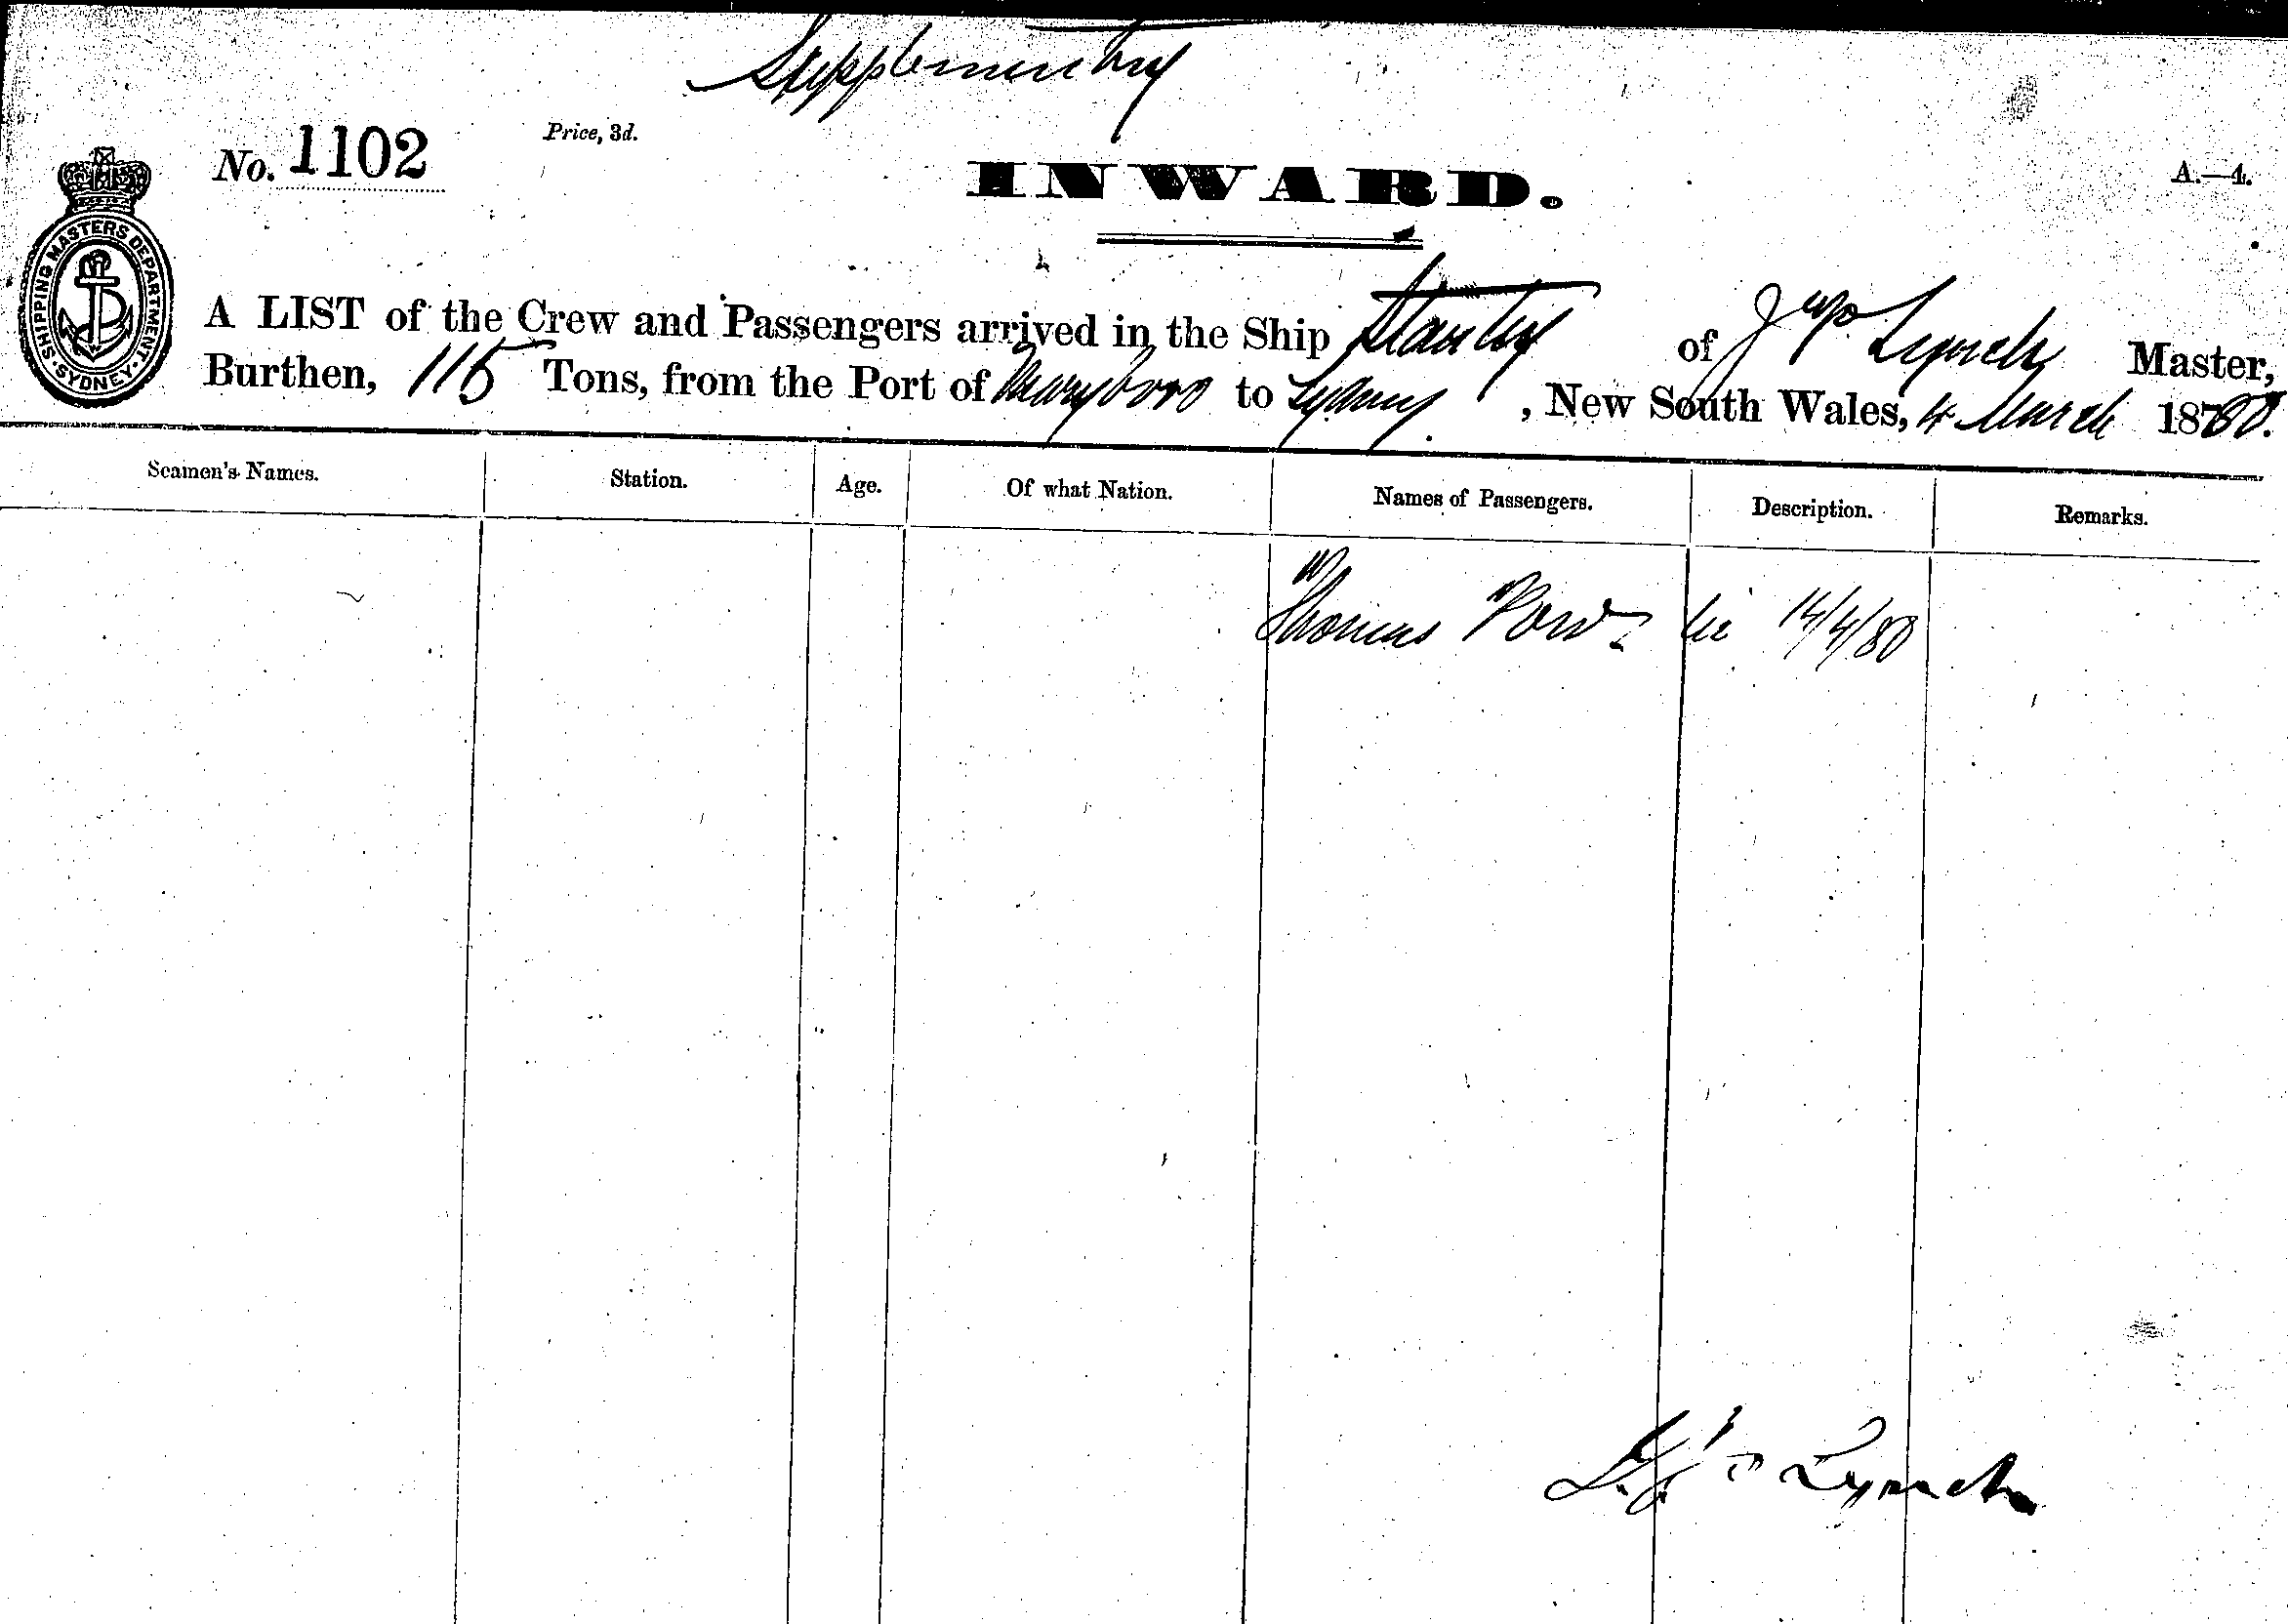 Supplementary
No. 1102
Price, 3d.
INWARD.
A.—4.
SHIPPING MASTERS DEPARTMENT · SYDNEY ·
A LIST of the Crew and Passengers arrived in the Ship Stanley of Lynch Master,
Burthen, 115 Tons, from the Port of Maryboro to Sydney, New South Wales, 4 March 1880.
Seamen's Names. Station. Age. Of what Nation. Names of Passengers. Description. Remarks.
Thomas 14/4/80
Lynch